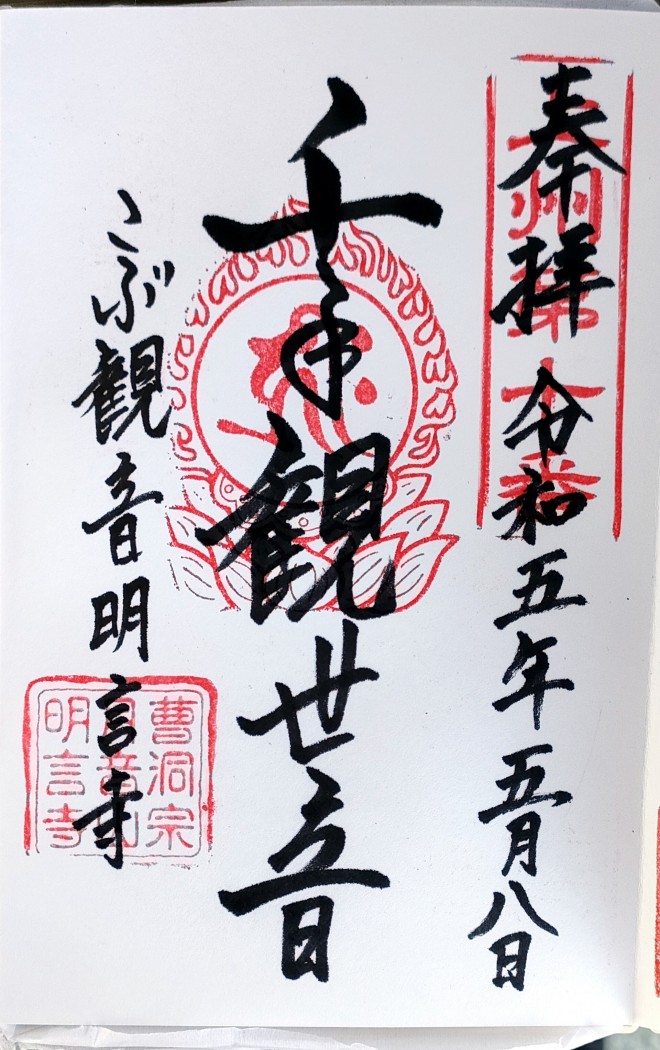 奉拝 令和五年五月八日
千手観世音
こぶ観音明言寺
曹洞宗
明言寺